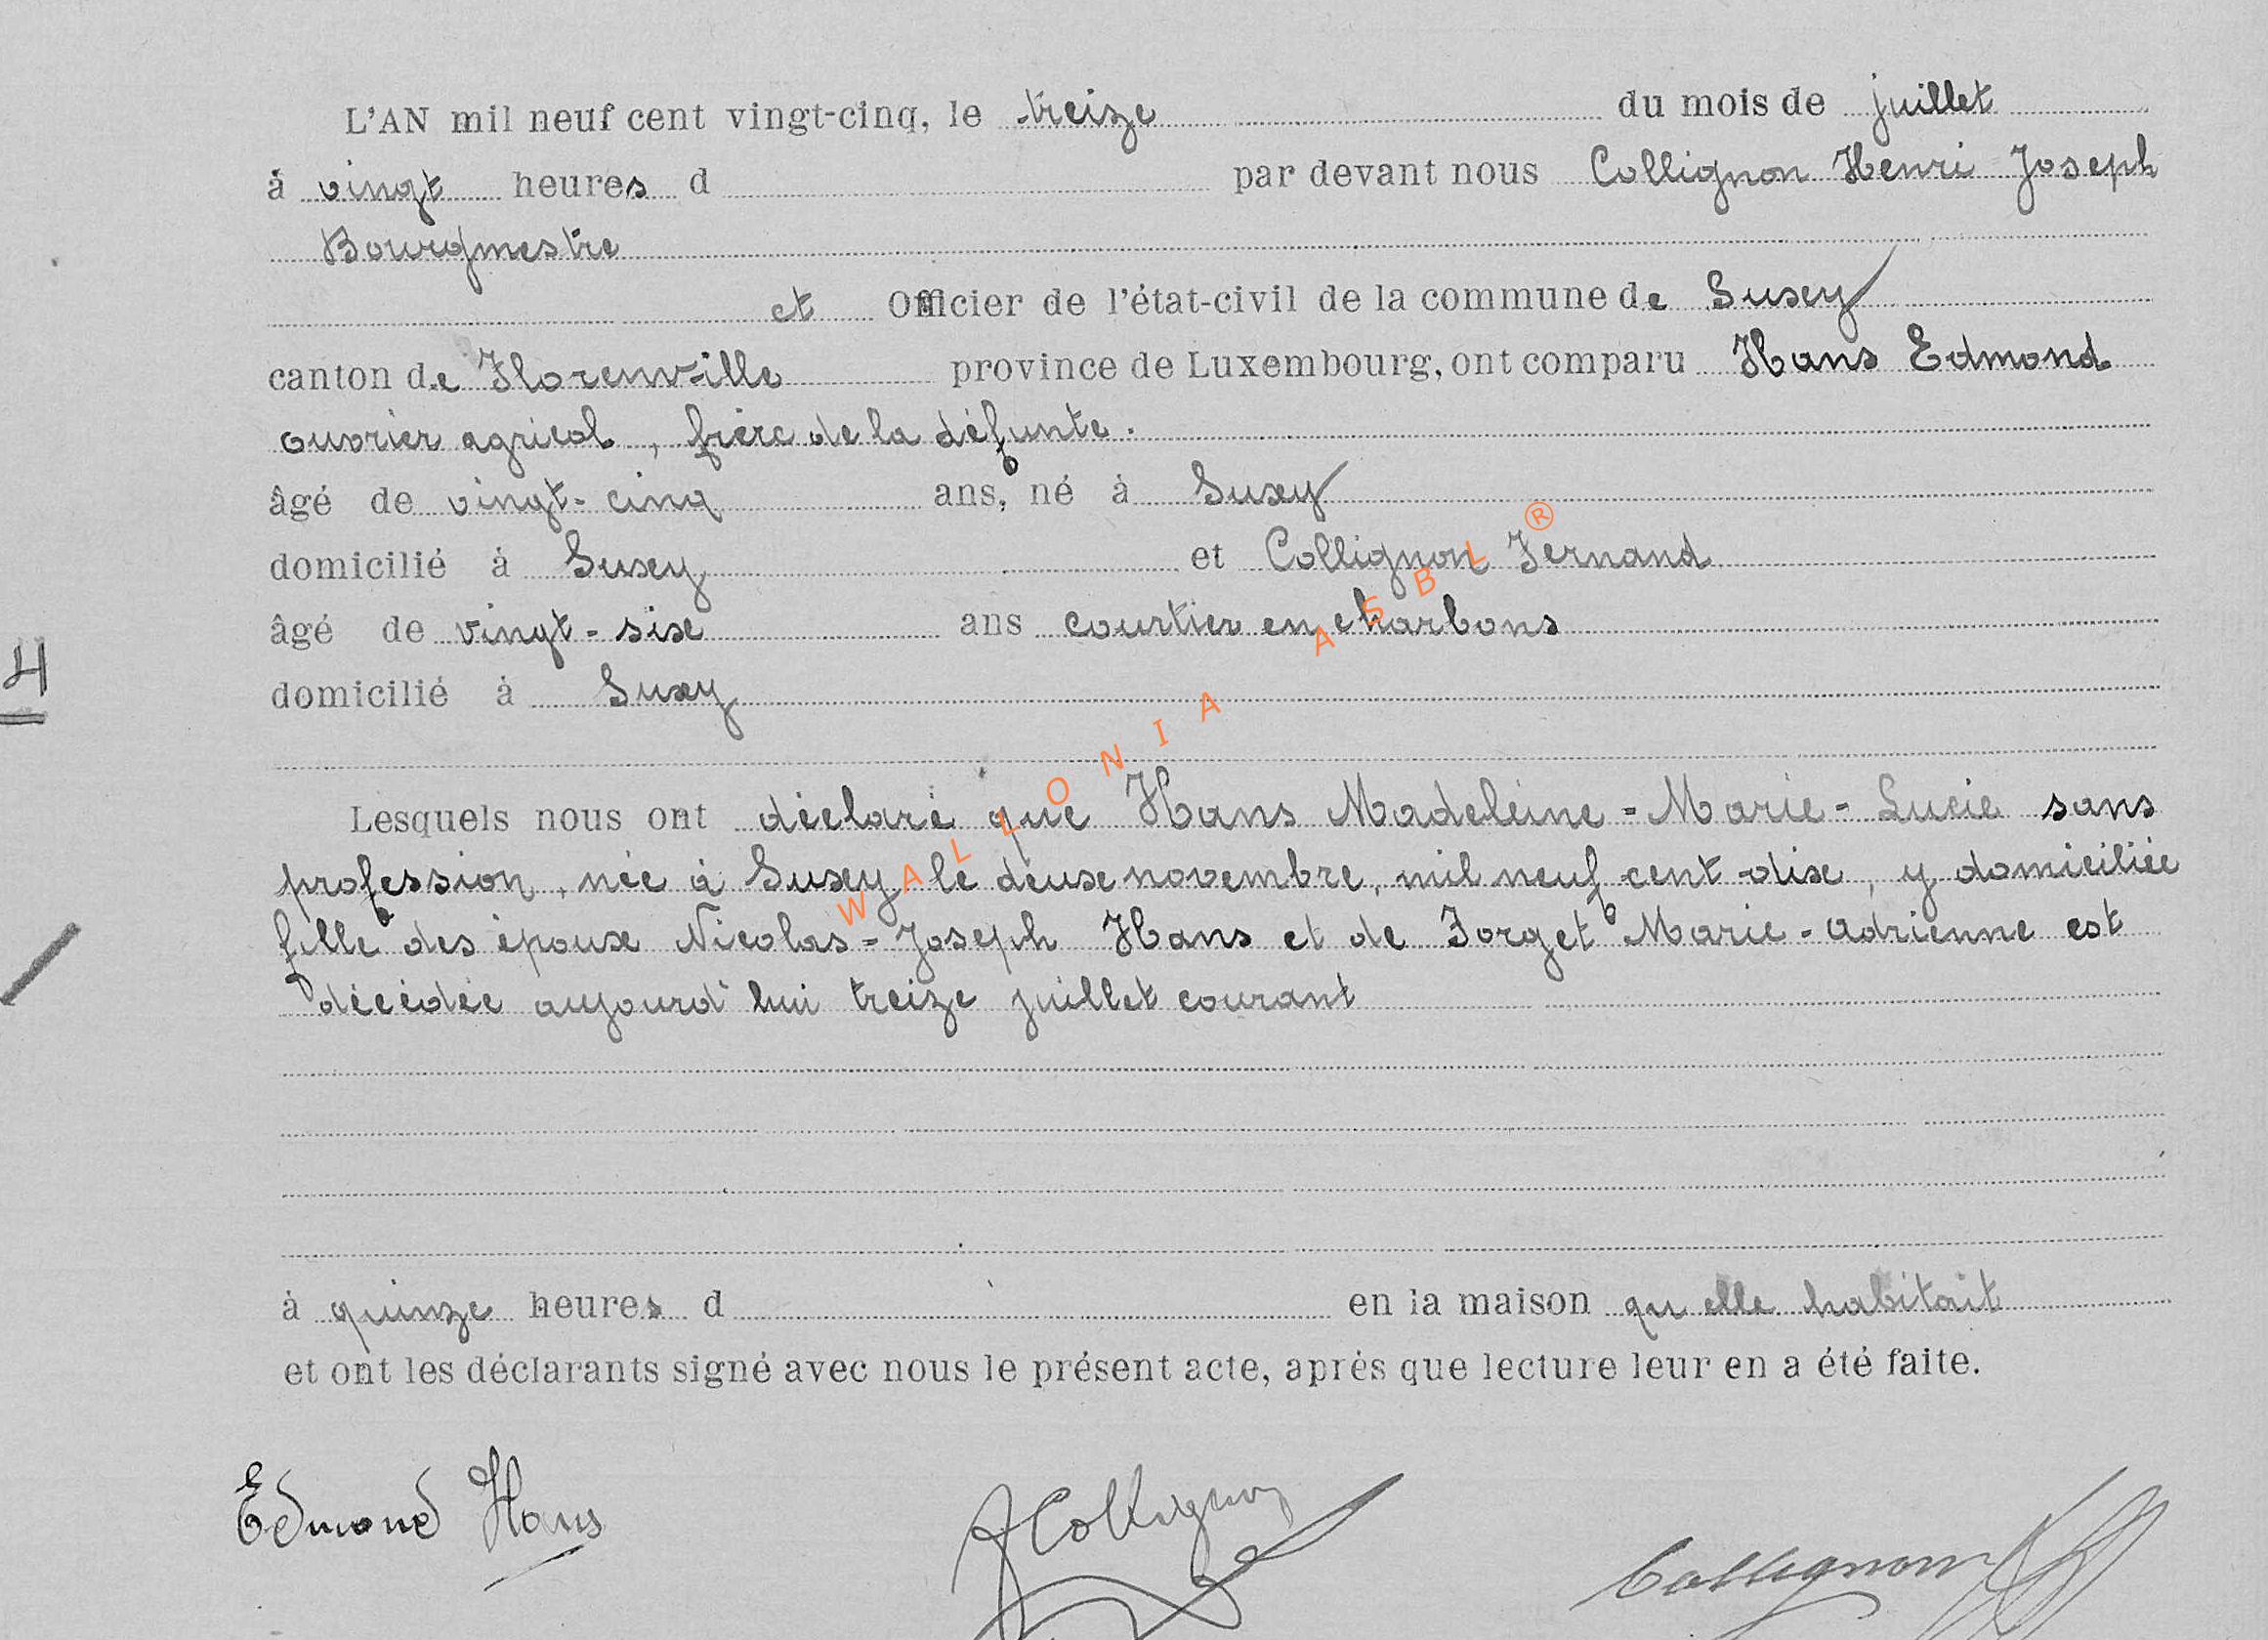 L'AN mil neuf cent vingt-cinq, le treize du mois de juillet
à vingt heures d par devant nous Collignon Henri Joseph
Bourgmestre
et Officier de l'état-civil de la commune de Suxy
canton de Florenville province de Luxembourg, ont comparu Hans Edmond
ouvrier agricol, frère de la défunte.
âgé de vingt-cinq ans, né à Suxy
domicilié à Suxy et Collignon Fernand
âgé de vingt-six ans courtier en charbons
4
domicilié à Suxy
Lesquels nous ont déclaré que Hans Madeleine-Marie-Lucie sans
profession, née à Suxy le deux novembre, mil neuf cent dix, y domiciliée
fille des époux Nicolas-Joseph Hans et de Forget Marie-Adrienne est
décédée aujourd'hui treize juillet courant
à quinze heures d en la maison qu'elle habitait
et ont les déclarants signé avec nous le présent acte, après que lecture leur en a été faite.
Edmond Hans
F Collignon
Collignon
WALLONIA ASBL ®